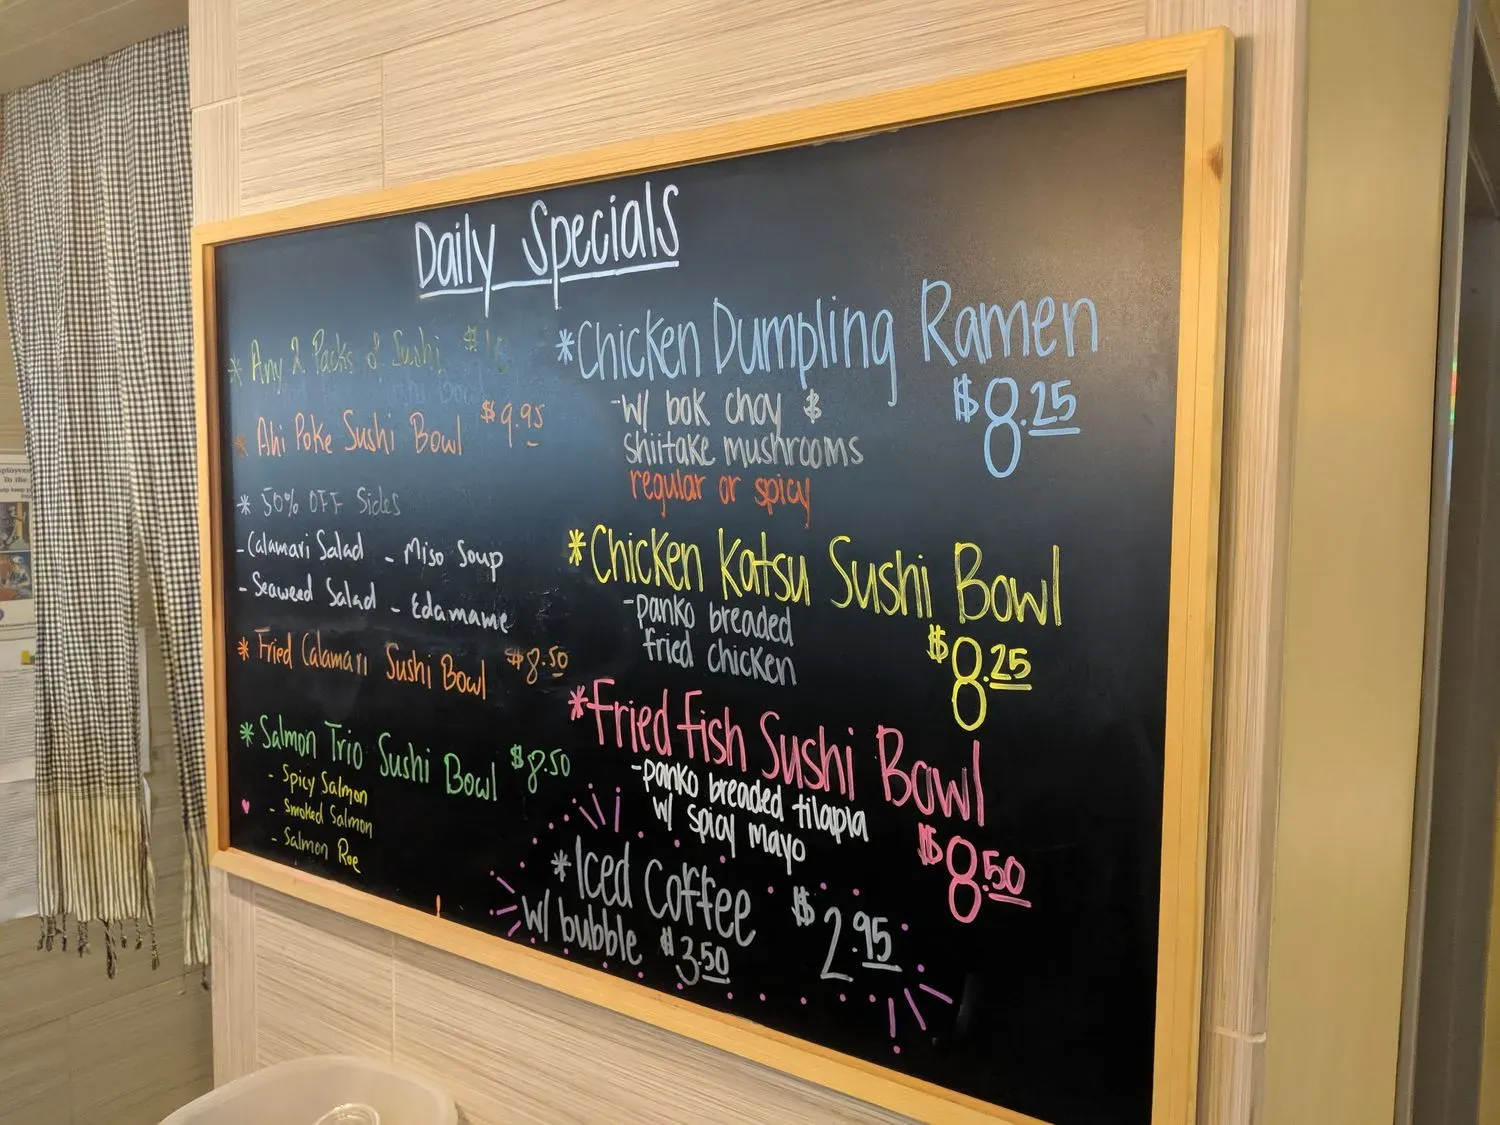 Daily Specials
* Any 2 Packs of Sushi
* Ahi Poke Sushi Bowl $9.95
* 50% OFF Sides
- Calamari Salad - Miso Soup
- Seaweed Salad - Edamame
* Fried Calamari Sushi Bowl $8.50
* Salmon Trio Sushi Bowl $8.50
- Spicy Salmon
- Smoked Salmon
- Salmon Roe
* Chicken Dumpling Ramen
$8.25
- w/ bok choy &
shiitake mushrooms
regular or spicy
* Chicken Katsu Sushi Bowl
- panko breaded
fried chicken
$8.25
* Fried Fish Sushi Bowl
- panko breaded tilapia
w/ spicy mayo
$8.50
* Iced Coffee $2.95
w/ bubble $3.50